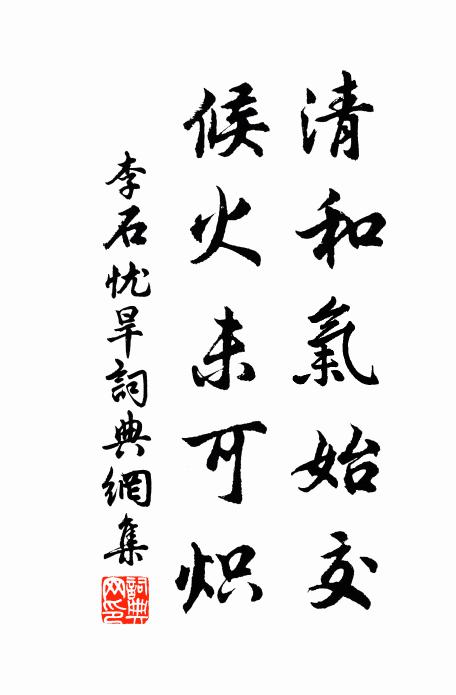 清和氣始交
候火未可炽
李石忧旱詞典網集
詞典网印